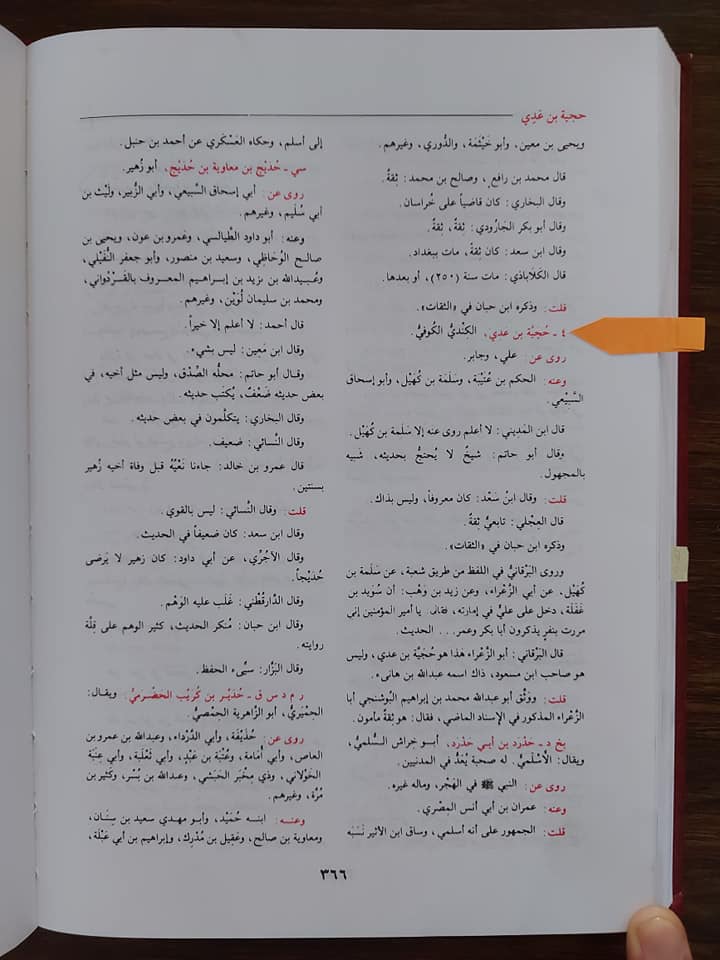 حجية بن عَدِي
ويحيى بن معين، وأبو خَيْثَمَة، والدُّوري، وغيرهم.
قال محمد بن رافع، وصالح بن محمد: ثِقةٌ.
وقال البخاري: كان قاضياً على خُراسان.
وقال أبو بكر الجَارُودي: ثِقَةٌ، ثِقَةٌ.
وقال ابن سعد: كان ثِقَةً، مات ببغداد.
قال الكَلَاباذي: مات سنة (٢٥٠)، أو بعدها.
قلت: وذكره ابن حبان في «الثقات».
٤ ـ حُجَيَّة بن عدي، الكِنْديُّ الكُوفيُّ.
روى عن: علي، وجابر.
وعنه: الحكم بن عُتَيْبَة، وسَلَمة بن كُهَيْل، وأبو إسحاق
السَّبِيْعي.
قال ابن المَدِيني: لا أعلم روى عنه إلا سَلَمة بن كُهَيْل.
وقال أبو حاتم: شيخٌ لا يُحتجُّ بحديثه، شبيه
بالمجهول.
قلت: وقال ابنُ سَعْد: كان معروفاً، وليس بذاك.
قال العِجْلي: تابعيٌّ ثِقةٌ.
وذكره ابن حبان في «الثقات».
وروى البَرْقانيُّ في اللفظ من طريق شعبة، عن سَلَمة بن
كُهَيْل، عن أبي الزَّعْراء، وعن زيد بن وَهْب: أن سُوَيد بن
غَفَلَة، دخل على عليٍّ في إمارته، فقال: يا أمير المؤمنين إني
مررت بنفرٍ يذكرون أبا بكر وعمر... الحديث.
قال البَرْقاني: أبو الزَّعْراء هذا هو حُجَيَّة بن عدي، وليس
هو صاحب ابن مسعود، ذاك اسمه عبدالله بن هانىء.
قلت: ووَثَّق أبو عبدالله محمد بن إبراهيم البُوشنجي أبا
الزَّعْراء المذكور في الإسناد الماضي، فقال: هو ثِقةٌ مأمون.
بخ د ـ حَدْرَد بن أبي حَدْرَد، أبو خِراش السُّلمي،
ويقال: الأَسْلَمي. له صحبة يُعَدُّ في المدنيين.
روى عن: النبي ﷺ في الهَجْر، وماله غيره.
وعنه: عمران بن أبي أنس المِصْري.
قلت: الجمهور على أنه أسلمي، وساق ابن الأثير نَسَبَه
إلى أسلم، وحكاه العَسْكَري عن أحمد بن حنبل.
سي ـ حُدَيْج بن معاوية بن حُدَيْج، أبو زُهير.
روى عن: أبي إسحاق السَّبيعي، وأبي الزُّبير، وليْث بن
أبي سُلَيم، وغيرهم.
وعنه: أبو داود الطَّيالسي، وعَمرو بن عون، ويحيى بن
صالح الوُحَاظي، وسعيد بن منصور، وأبو جعفر النُّفَيْلي،
وعُبيدالله بن يزيد بن إبراهيم المعروف بالقَرْدُواني،
ومحمد بن سليمان لُوَيْن، وغيرهم.
قال أحمد: لا أعلم إلا خيراً.
وقال ابن مَعِين: ليس بشيء.
وقال أبو حاتم: محلُّه الصِّدْق، وليس مثل أخيه، في
بعض حديثه ضَعْفٌ، يُكتب حديثه.
وقال البخاري: يتكلَّمون في بعض حديثه.
وقال النَّسائي: ضعيف.
قال عمرو بن خالد: جاءنا نَعْيُهُ قبل وفاة أخيه زُهير
بسنتين.
قلت: وقال النَّسائي: ليس بالقوي.
وقال ابن سعد: كان ضعيفاً في الحديث.
وقال الآجُرِّي، عن أبي داود: كان زهير لا يَرضى
حُدَيْجاً.
وقال الدَّارقُطْني: غَلَب عليه الوَهْم.
وقال ابن حبان: مُنكر الحديث، كثير الوهم على قِلَّة
روايته.
وقال البَزَّار: سيِّىء الحفظ.
ر م د س ق ـ حُدَيْر بن كُرَيْب الحَضْرميُّ. ويقال:
الحِمْيَري، أبو الزَّاهرية الحِمْصيُّ.
روى عن: حُذَيْفَة، وأبي الدَّرْداء، وعبدالله بن عمرو بن
العاص، وأبي أُمامة، وعُتْبَة بن عَبْدٍ، وأبي ثَعْلَبة، وأبي عِنَبَة
الخَوْلاني، وذي مِخْبَر الحَبَشي، وعبدالله بن بُسْر، وكثير بن
مُرَّة، وغيرهم.
وعنه: ابنه حُمَيْد، وأبو مهدي سعيد بن سِنَان،
ومعاوية بن صالح، وعَقِيل بن مُدْرِك، وإبراهيم بن أبي عَبْلَة،
٣٦٦